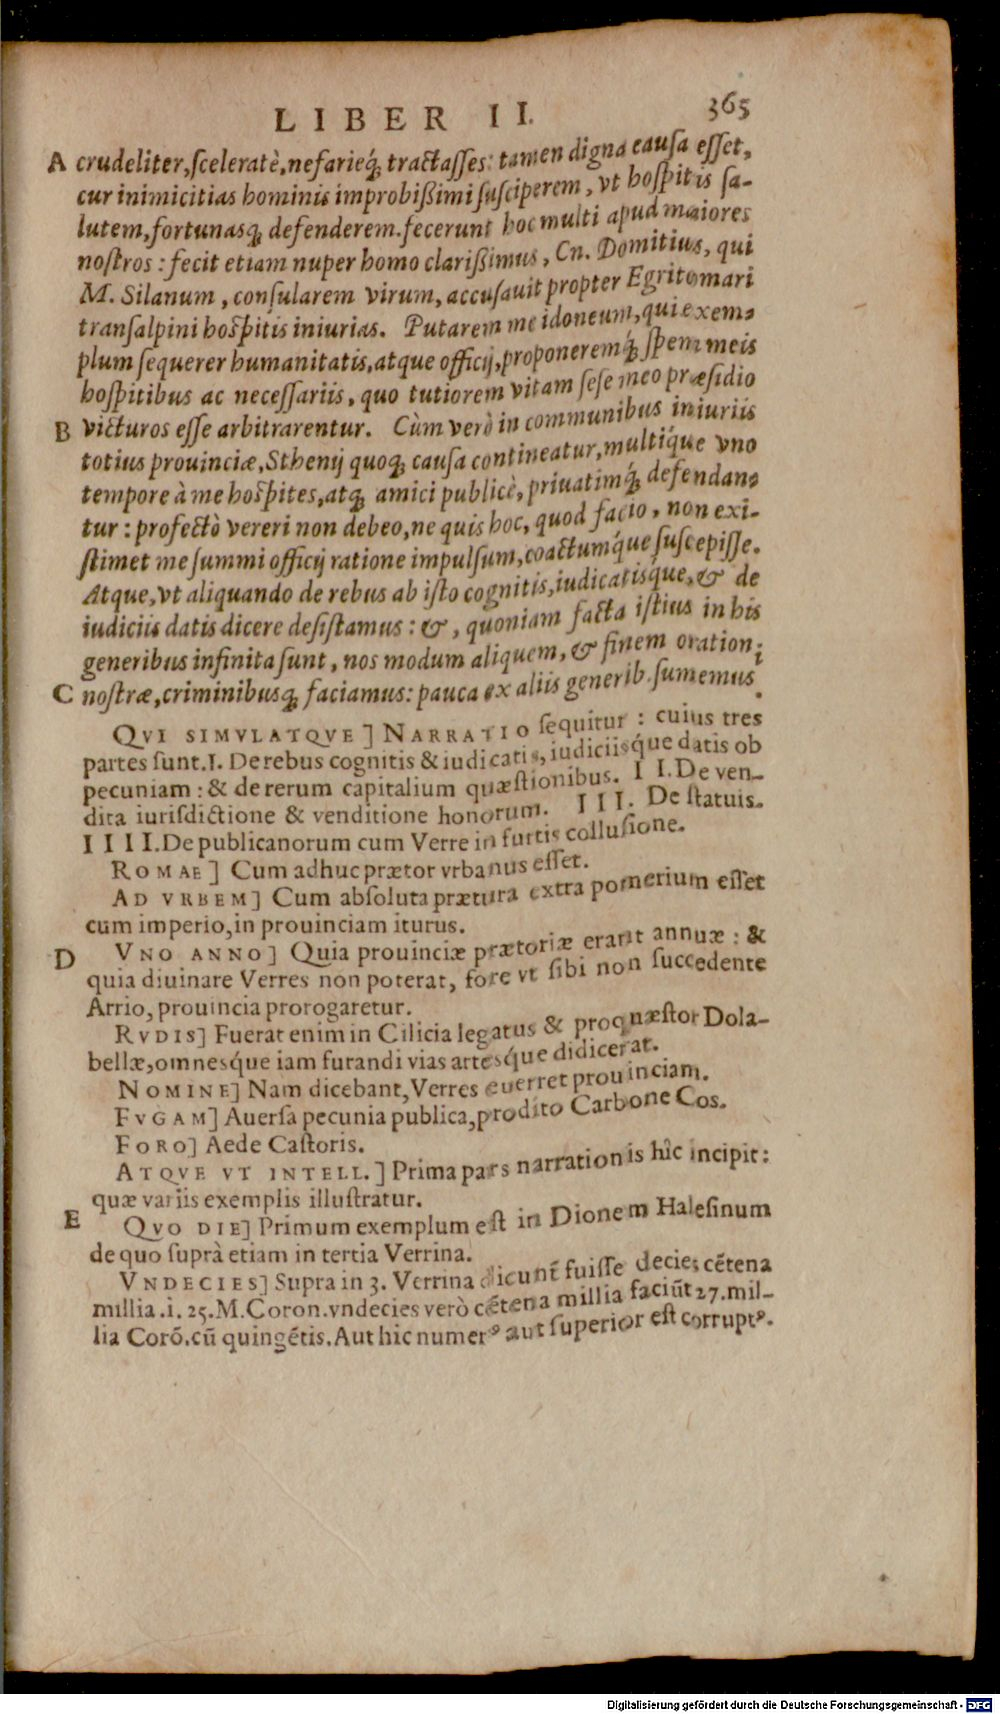 LIBER II. 365
A crudeliter, sceleratè, nefarieq́; tractasses: tamen digna causa esset,
cur inimicitias hominis improbißimi susciperem, vt hospitis sa-
lutem, fortunasq; defenderem. fecerunt hoc multi apud maiores
nostros: fecit etiam nuper homo clarißimus, Cn. Domitius, qui
M. Silanum, consularem virum, accusauit propter Egritomari
transalpini hospitis iniurias. Putarem me idoneum, qui exem-
plum sequerer humanitatis, atque officij, proponeremq́; spem meis
hospitibus ac necessariis, quo tutiorem vitam sese meo præsidio
B victuros esse arbitrarentur. Cùm verò in communibus iniuriis
totius prouinciæ, Sthenij quoq; causa contineatur, multiq́ue vno
tempore à me hospites, atq; amici publicè, priuatimq́; defendan-
tur: profectò vereri non debeo, ne quis hoc, quod facio, non exi-
stimet me summi officij ratione impulsum, coactumq́ue suscepisse.
Atque, vt aliquando de rebus ab isto cognitis, iudicatisq́ue, & de
iudiciis datis dicere desistamus: &, quoniam facta istius in his
generibus infinita sunt, nos modum aliquem, & finem orationi
C nostræ, criminibusq; faciamus: pauca ex aliis generib. sumemus.
QVI SIMVLATQVE] NARRATIO sequitur: cuius tres
partes sunt. I. De rebus cognitis & iudicatis, iudiciisq́ue datis ob
pecuniam: & de rerum capitalium quæstionibus. II. De ven-
dita iurisdictione & venditione honorum. III. De statuis.
IIII. De publicanorum cum Verre in furtis collusione.
ROMAE] Cum adhuc prætor vrbanus esset.
AD VRBEM] Cum absoluta prætura extra pomerium esset
cum imperio, in prouinciam iturus.
D VNO ANNO] Quia prouinciæ prætoriæ erant annuæ: &
quia diuinare Verres non poterat, fore vt sibi non succedente
Arrio, prouincia prorogaretur.
RVDIS] Fuerat enim in Cilicia legatus & proquæstor Dola-
bellæ, omnesq́ue iam furandi vias artesq́ue didicerat.
NOMINE] Nam dicebant, Verres euerret prouinciam.
FVGAM] Auersa pecunia publica, prodito Carbone Cos.
FORO] Aede Castoris.
ATQVE VT INTELL.] Prima pars narrationis hîc incipit:
quæ variis exemplis illustratur.
E QVO DIE] Primum exemplum est in Dionem Halesinum
de quo suprà etiam in tertia Verrina.
VNDECIES] Supra in 3. Verrina dicunt̃ fuisse decies cẽtena
millia .i. 25. M. Coron. vndecies verò cẽtena millia faciũt 27. mil-
lia Corõ. cũ quingẽtis. Aut hic numerꝰ aut superior est corruptꝰ.
Digitalisierung gefördert durch die Deutsche Forschungsgemeinschaft - DFG